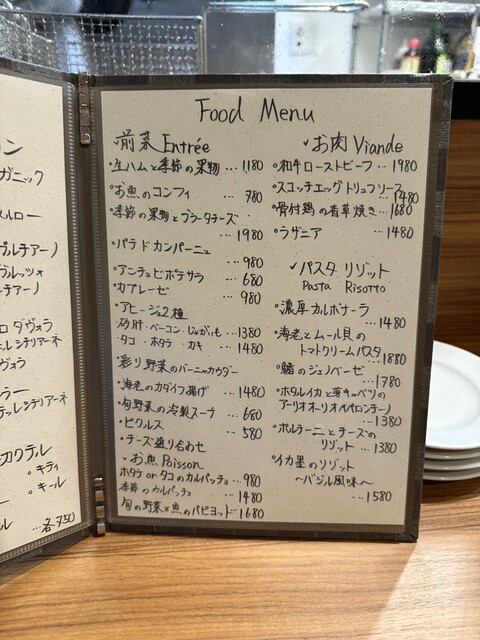 ン
ガニック
メルロー
プルチアーノ
ヴルッツォ
チアーノ
ロ ダヴォラ
シチリアーネ
ヴォラ
ラー
シチリアーネ
カクテル
・キティ
・キール
…各750
Food Menu
前菜 Entrée
・生ハムと季節の果物 … 1180
・お魚のコンフィ … 780
・季節の果物とブラータチーズ
… 1980
・パテドカンパーニュ
… 980
・アンチョビポテサラ … 680
・カプレーゼ … 980
・アヒージョ2種
砂肝・ベーコン・じゃがいも … 1380
タコ・ホタテ・カキ … 1480
・彩り野菜のバーニャカウダー
・海老のカダイフ揚げ … 1480
・旬野菜の冷製スープ … 680
・ピクルス … 580
・チーズ盛り合わせ
✓お魚 Poisson
ホタテ or タコのカルパッチョ … 980
季節のカルパッチョ … 1480
旬の野菜と魚のパピヨット … 1680
✓お肉 Viande
・和牛ローストビーフ … 1980
・スコッチエッグトリュフソース
… 1480
・骨付鶏の香草焼き … 1680
・ラザニア … 1480
✓パスタ リゾット
Pasta Risotto
・濃厚カルボナーラ
… 1480
・海老とムール貝の
トマトクリームパスタ
… 1880
・鯖のジェノベーゼ
… 1780
・ホタルイカと芽キャベツの
アーリオオーリオペペロンチーノ
… 1380
・ポルチーニとチーズの
リゾット … 1380
・イカ墨のリゾット
〜バジル風味〜
… 1580